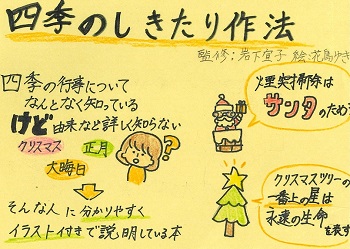 四季のしきたり作法
監修:岩下宣子 絵:花島ゆき
四季の行事について
なんとなく知っている
けど由来など詳しく知らない
クリスマス
正月
大晦日
?
そんな人に分かりやすく
イラスト付きで説明している本
煙突掃除は
サンタのため
クリスマスツリーの
一番上の星は
永遠の生命
を表す